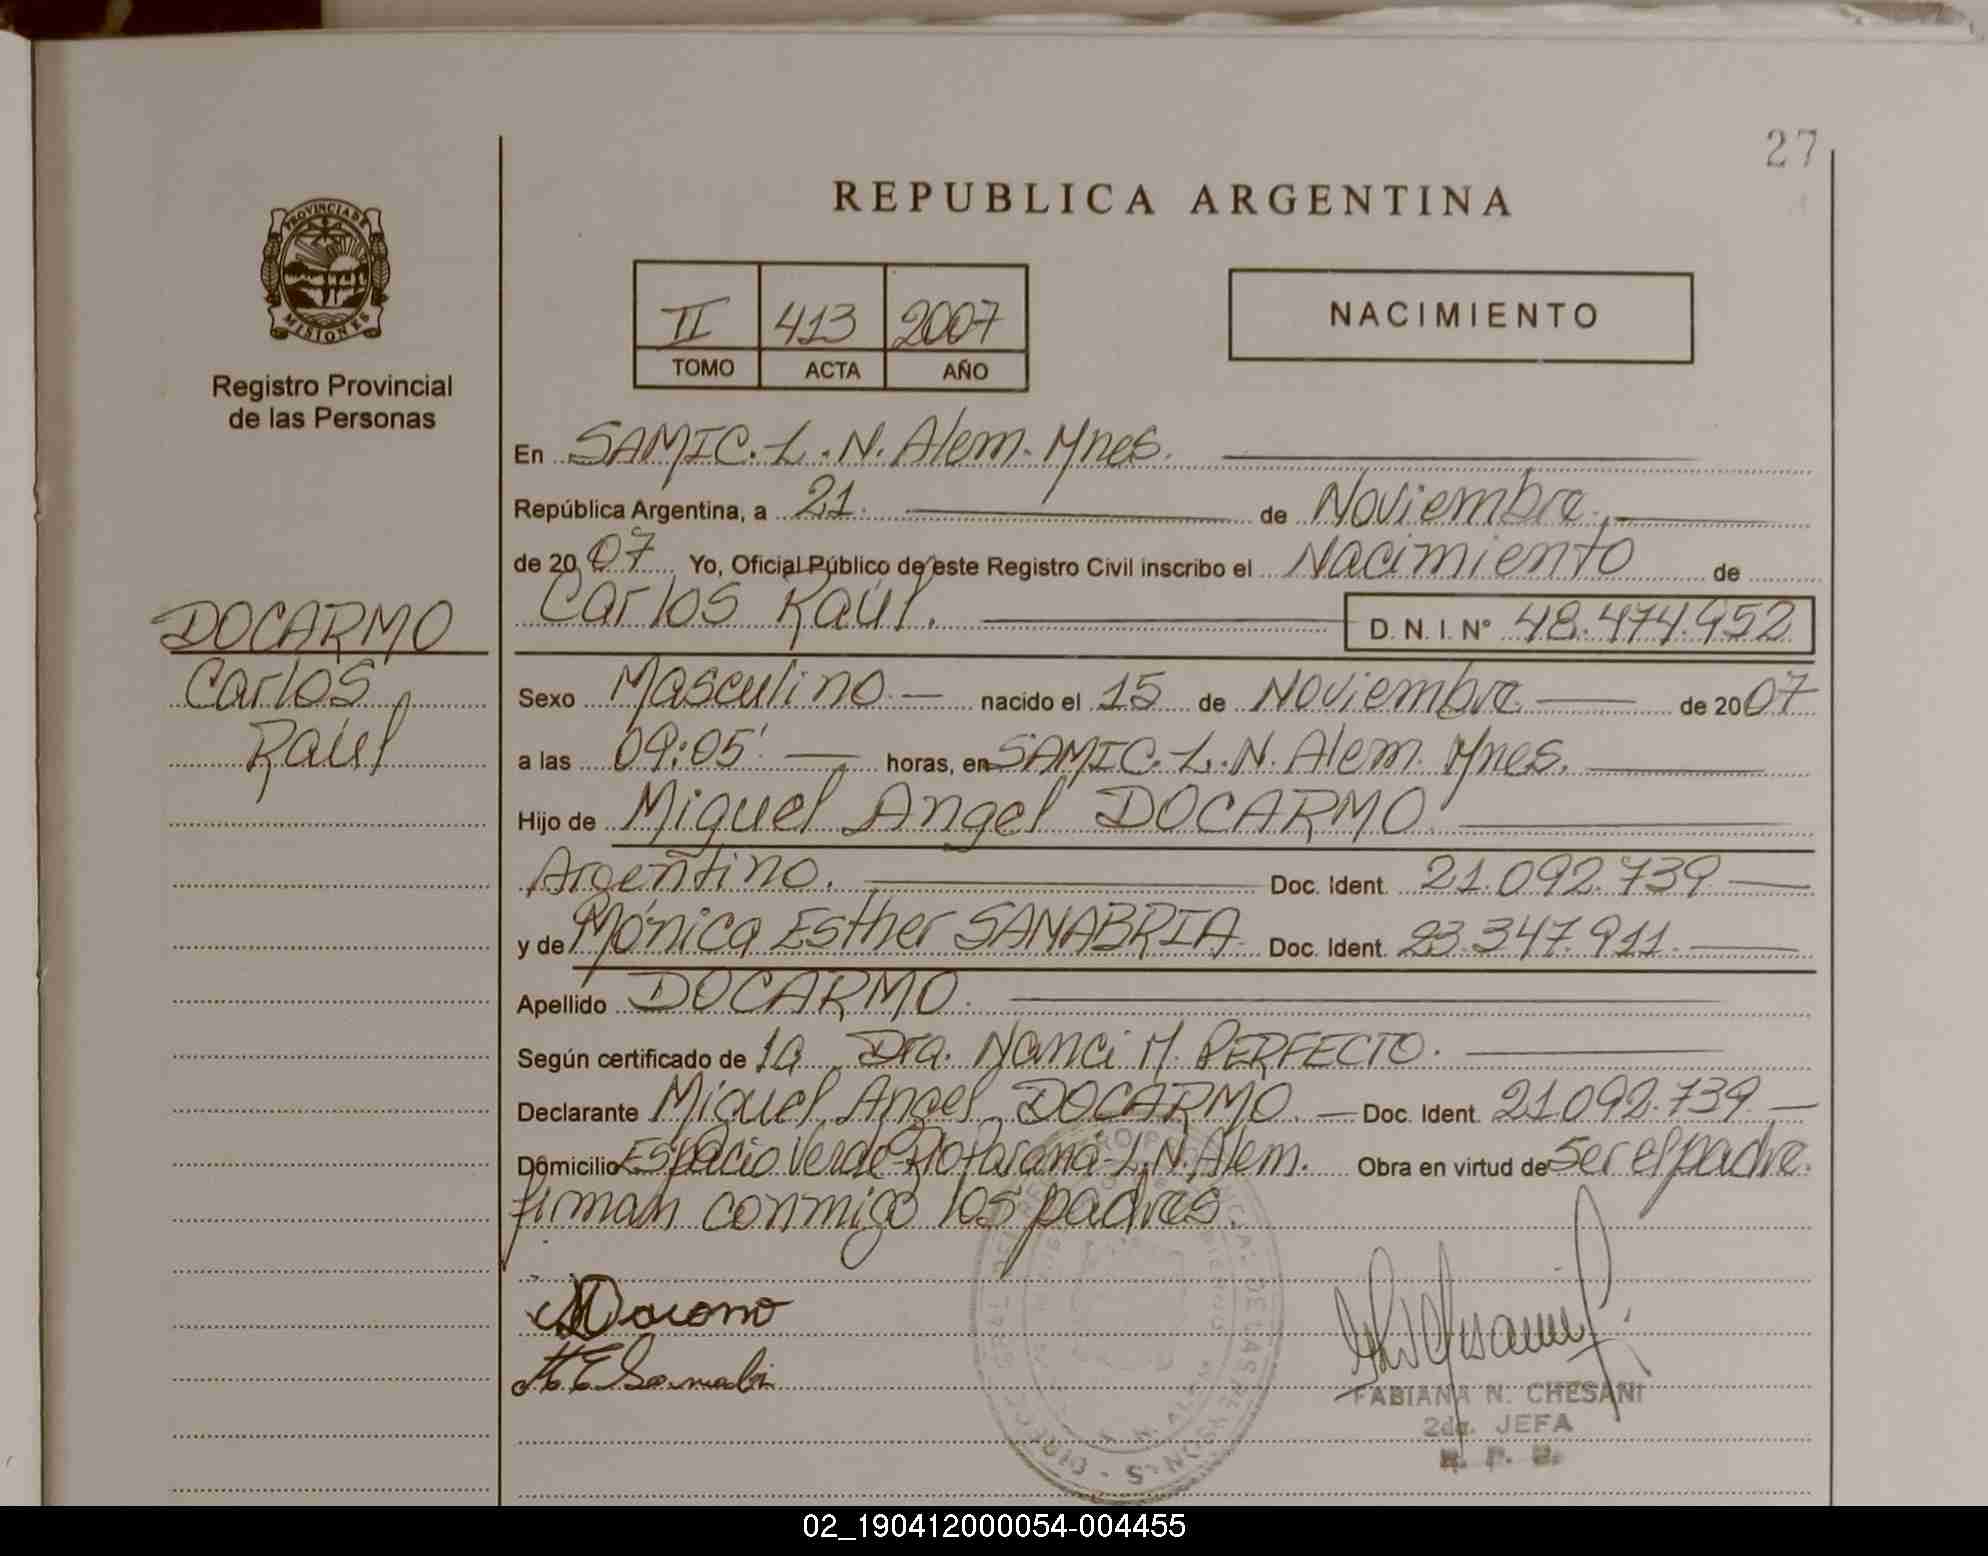 27
REPUBLICA ARGENTINA
PROVINCIA DE
MISIONES
Registro Provincial
de las Personas
II 413 2007
TOMO ACTA AÑO
NACIMIENTO
En SAMIC. L. N. Alem. Mnes.
República Argentina, a 21. de Noviembre.
de 2007 Yo, Oficial Público de este Registro Civil inscribo el Nacimiento de
Carlos Raúl.
D.N.I. Nº 48.474.952
DOCARMO
Carlos
Raúl
Sexo Masculino.— nacido el 15 de Noviembre.— de 2007
a las 09:05' — horas, en SAMIC. L. N. Alem. Mnes.
Hijo de Miguel Angel DOCARMO
Argentino. Doc. Ident. 21.092.739
y de Mónica Esther SANABRIA Doc. Ident. 23.347.911.
Apellido DOCARMO.
Según certificado de la Dra. Nanci M. PERFECTO.
Declarante Miguel Angel DOCARMO. — Doc. Ident. 21.092.739.—
Domicilio Espacio Verde-Rioparaná-L.N. Alem. Obra en virtud de ser el padre.
firman conmigo los padres.
FABIANA N. CHESANI
2da. JEFA
R. P. P.
02_190412000054-004455